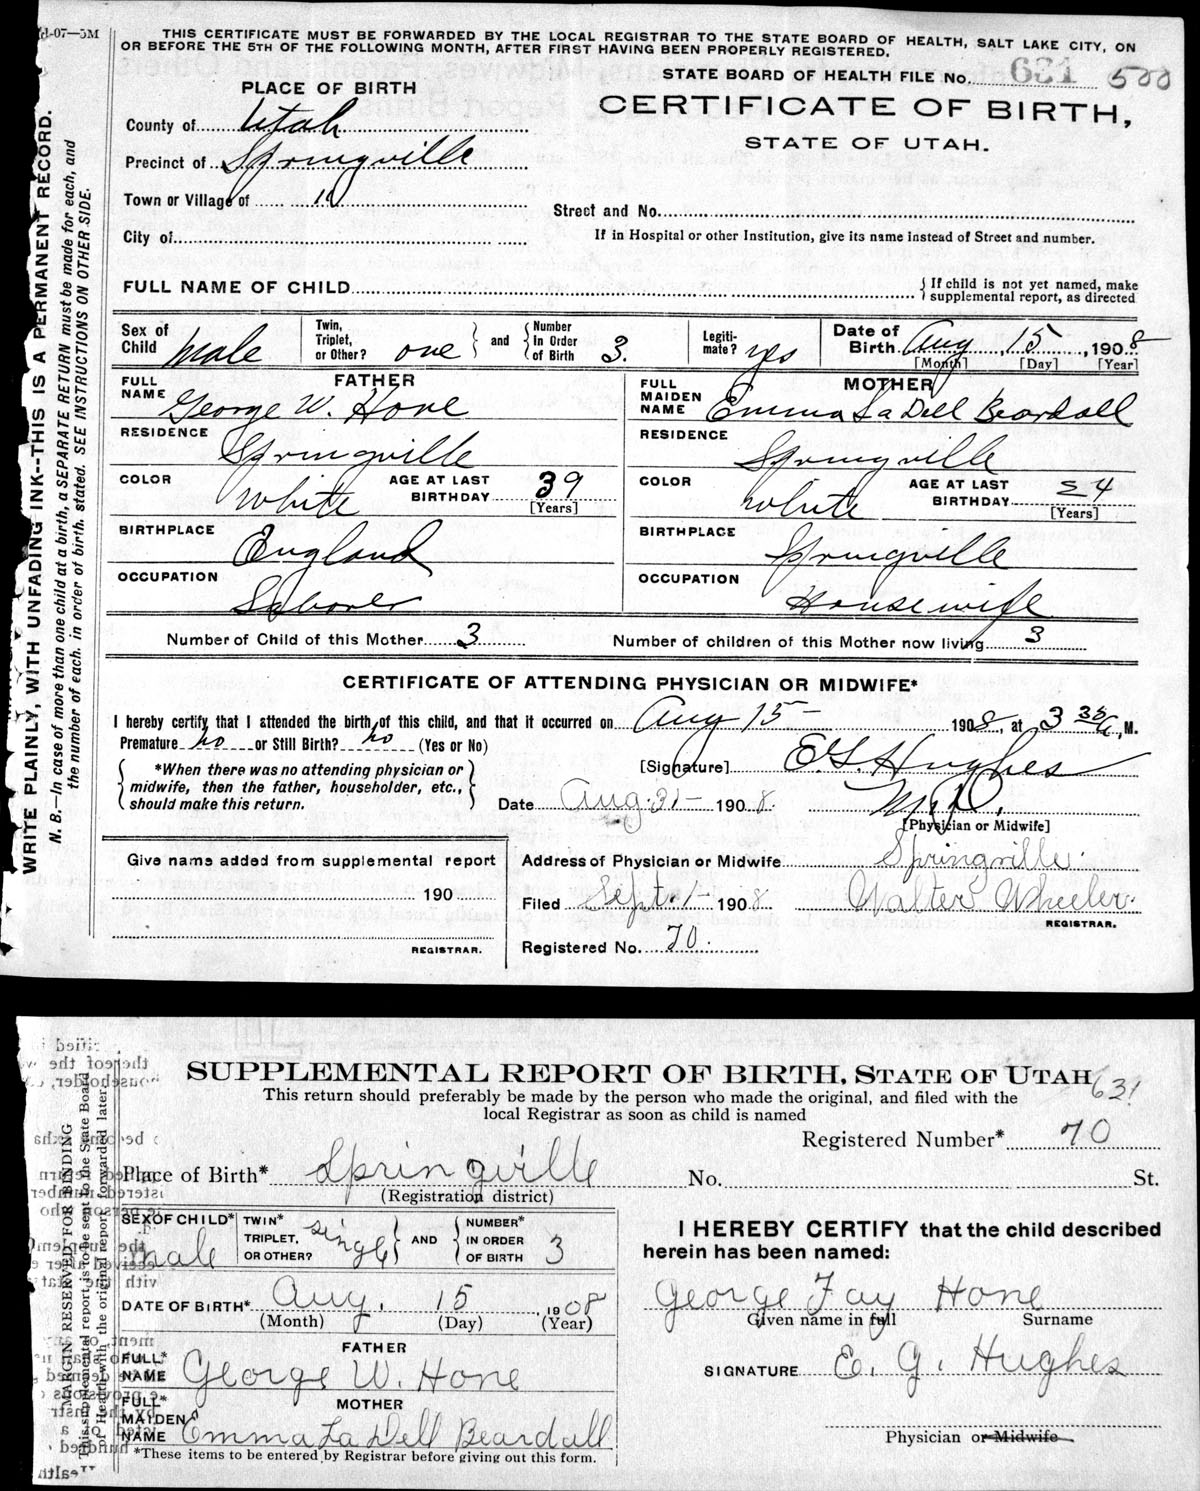 d-07—5M
THIS CERTIFICATE MUST BE FORWARDED BY THE LOCAL REGISTRAR TO THE STATE BOARD OF HEALTH, SALT LAKE CITY, ON
OR BEFORE THE 5TH OF THE FOLLOWING MONTH, AFTER FIRST HAVING BEEN PROPERLY REGISTERED.
STATE BOARD OF HEALTH FILE No. 631 500
PLACE OF BIRTH
CERTIFICATE OF BIRTH,
STATE OF UTAH.
County of Utah
Precinct of Springville
Town or Village of "
Street and No.
City of
If in Hospital or other Institution, give its name instead of Street and number.
FULL NAME OF CHILD
If child is not yet named, make
supplemental report, as directed
Sex of Child male
Twin, Triplet, or Other? one and Number In Order of Birth 3.
Legiti-mate? yes
Date of Birth Aug 15, 1908
[Month] [Day] [Year]
FATHER
FULL NAME George W. Hone
MOTHER
FULL MAIDEN NAME Emma La Dell Beardall
RESIDENCE Springville
RESIDENCE Springville
COLOR White AGE AT LAST BIRTHDAY 39 [Years]
COLOR White AGE AT LAST BIRTHDAY 24 [Years]
BIRTHPLACE England
BIRTHPLACE Springville
OCCUPATION Laborer
OCCUPATION Housewife
Number of Child of this Mother 3 Number of children of this Mother now living 3
CERTIFICATE OF ATTENDING PHYSICIAN OR MIDWIFE*
I hereby certify that I attended the birth of this child, and that it occurred on Aug 15 - 1908, at 3 30 a, M.
Premature no or Still Birth? no (Yes or No)
*When there was no attending physician or
midwife, then the father, householder, etc.,
should make this return.
[Signature] E. G. Hughes
Date Aug. 31 - 1908. M.D.
[Physician or Midwife]
Give name added from supplemental report
190
REGISTRAR.
Address of Physician or Midwife Springville.
Filed Sept. 1 - 1908 Walter Wheeler.
REGISTRAR.
Registered No. 70.
WRITE PLAINLY, WITH UNFADING INK--THIS IS A PERMANENT RECORD.
N. B.—In case of more than one child at a birth, a SEPARATE RETURN must be made for each, and
the number of each, in order of birth, stated. SEE INSTRUCTIONS ON OTHER SIDE.
SUPPLEMENTAL REPORT OF BIRTH, STATE OF UTAH 631
This return should preferably be made by the person who made the original, and filed with the
local Registrar as soon as child is named
Registered Number* 70
Place of Birth* Springville No. St.
(Registration district)
SEX OF CHILD* male
TWIN* TRIPLET, OR OTHER? single AND NUMBER* IN ORDER OF BIRTH 3
DATE OF BIRTH* Aug. 15, 1908
(Month) (Day) (Year)
FATHER
FULL* NAME George W. Hone
MOTHER
FULL* MAIDEN NAME Emma La Dell Beardall
*These items to be entered by Registrar before giving out this form.
I HEREBY CERTIFY that the child described
herein has been named:
George Fay Hone
Given name in full Surname
SIGNATURE E. G. Hughes
Physician or Midwife
MARGIN RESERVED FOR BINDING
This supplemental report is to be sent to the State Board
of Health with the original report forwarded later